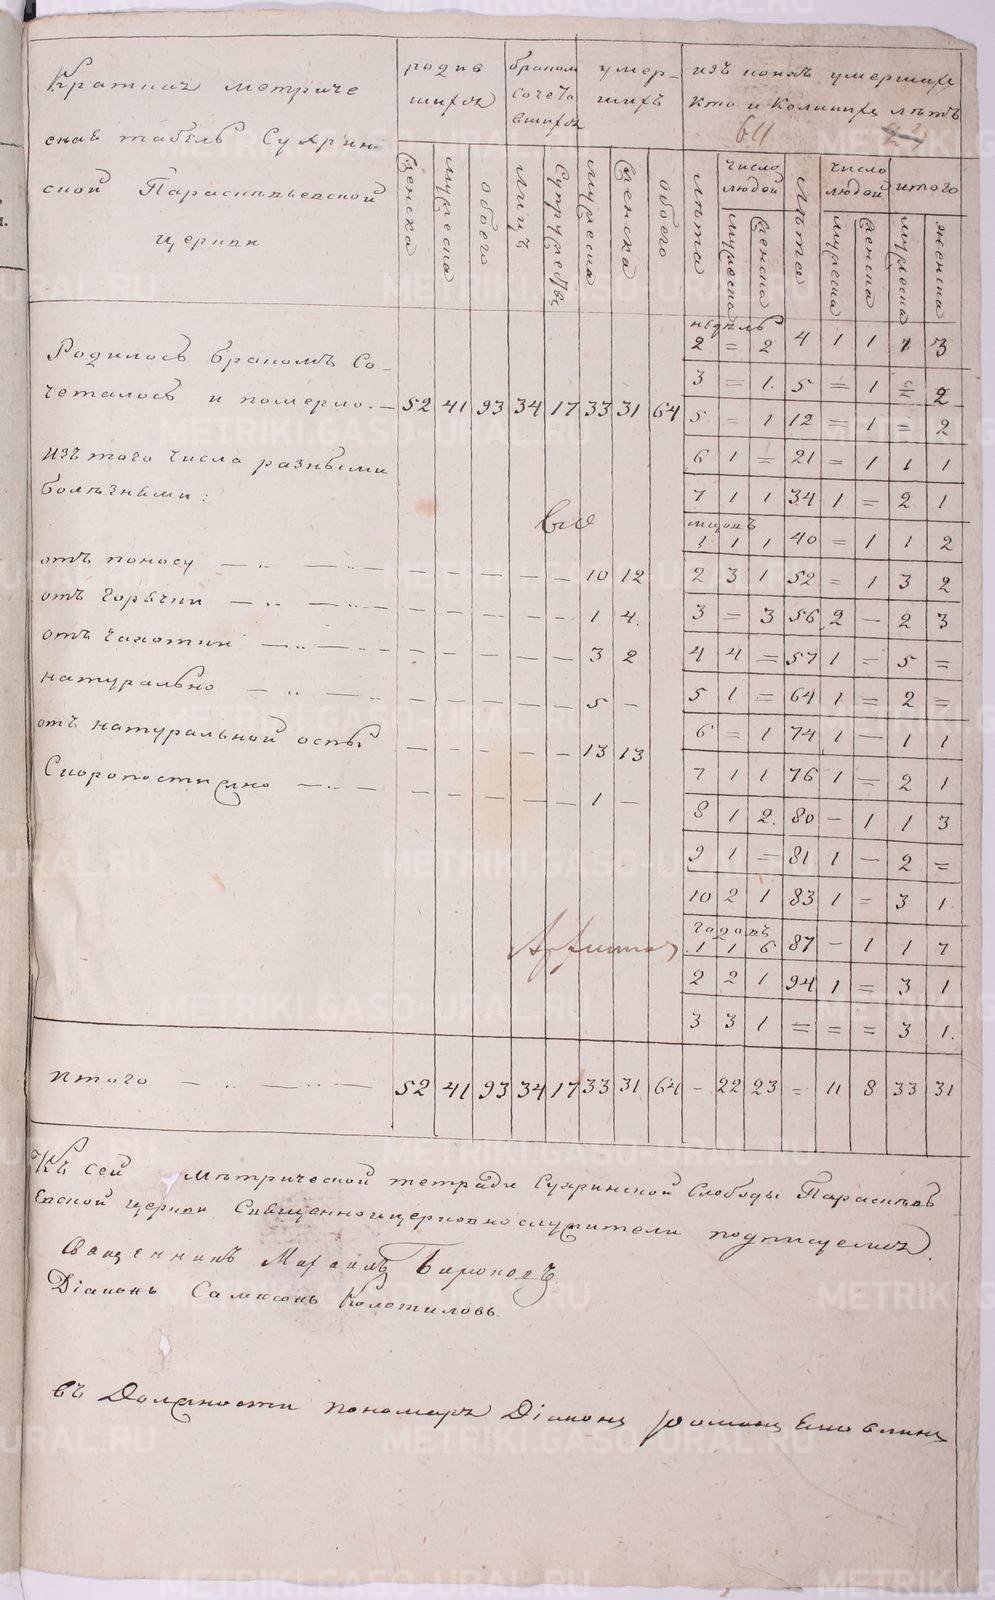 Краткая метриче
ская табель Сухрин
ской Параскевьевской
церкви
родив
шихся
браком
сочета
вшихся
умер-
шихъ
изъ коихъ умершихъ
кто и коликихъ лѣтъ
64
Женска
мужеска
обоего
лицъ
Супружествъ
мужеска
Женска
обоего
лѣта
число людей
мужеска
Женска
лѣта
число людей
мужеска
Женска
итого
мужеска
женска
Родилось бракомъ Со-
четалось и померло. — 52 41 93 34 17 33 31 64
изъ того числа разными
болѣзнями:
отъ поносу — — — — — — — 10 12
отъ горячки — — — — — 1 4.
отъ чахотки — — — — — 3 2
натурально — — — — — 5 —
отъ натуральной оспы — — — — — 13 13
Скоропостижно — — — — — 1 —
недѣль
2 = 2 4 1 1 1 3
3 = 1. 5 = 1 = 2
5 = 1 12 = 1 = 2
6 1 = 21 = 1 1 1
7 1 1 34 1 = 2 1
мѣсяцъ
1 1 1 40 = 1 1 2
2 3 1 52 = 1 3 2
3 = 3 56 2 — 2 3
4 4 = 57 1 = 5 =
5 1 = 64 1 = 2 =
6 = 1 74 1 — 1 1
7 1 1 76 1 = 2 1
8 1 2. 80 — 1 1 3
9 1 = 81 1 — 2 =
10 2 1 83 1 = 3 1
годовъ
1 1 6 87 — 1 1 7
2 2 1 94 1 = 3 1
3 3 1 = = = 3 1.
итого — — — 52 41 93 34 17 33 31 64 — 22 23 = 11 8 33 31
Къ сей метрической тетради Сухринской Слободы Параскев
евской церкви Священноицерковнослужители подписуемся.
Священникъ Михаилъ
Діаконъ Самсонъ Колотиловъ.
въ Должности пономаря Діаконъ Романъ
METRIKI.GASO-URAL.RU